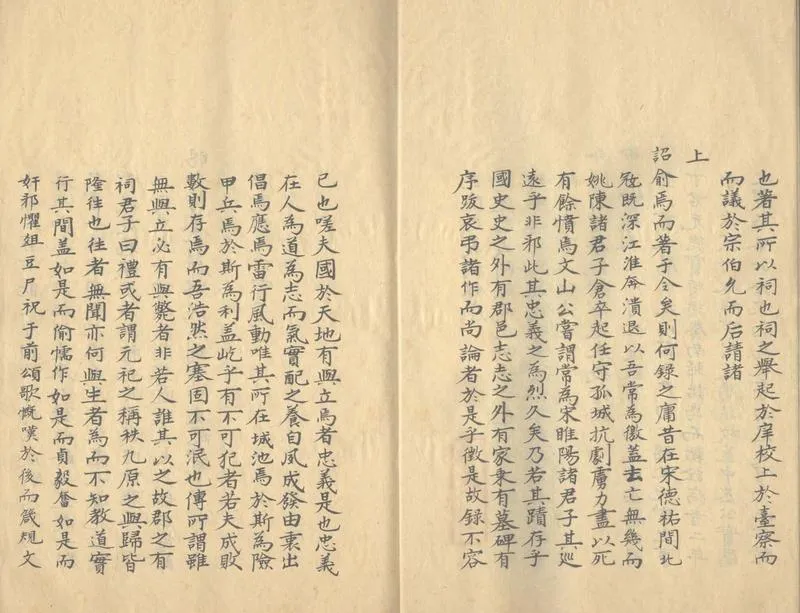 也著其所以祠也祠之舉起於庠校上於臺察而
而議於宗伯允而后請諸
上
詔俞焉而著于令矣則何錄之庸昔在宋德祐間北
㓂既深江淮奔潰退以吾常為徼蓋去亡無幾而
姚陳諸君子倉卒起任守孤城抗劇虜力盡以死
有餘憤焉文山公嘗謂常為宋睢陽諸君子其巡
遠乎非邪此其忠義之為烈久矣乃若其蹟存乎
國史史之外有郡邑志志之外有家乘有墓碑有
序跋哀弔諸作而尚論者於是乎徵是故錄不容
已也嗟夫國於天地有與立焉者忠義是也忠義
在人為道為志而氣實配之養自夙成發由衷出
倡焉應焉雷行風動唯其所在城池焉於斯為險
甲兵焉於斯為利蓋屹乎有不可犯者若夫成敗
數則存焉而吾浩然之塞固不可泯也傳所謂雖
無與立必有與斃者非若人誰其以之故郡之有
祠君子曰禮或者謂元祀之稱秩九原之興歸皆
隆往也往者無聞亦何與生者為而不知教道實
行其間蓋如是而偷懦作如是而貞毅奮如是而
奸邪懼俎豆尸祝于前頌歌慨嘆於後而箴規文